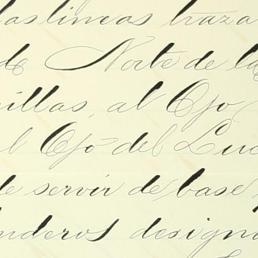 las lineas traza
do Norte de la
illas, al Ojo
l Ojo del Luc
de servir de base
nderos design